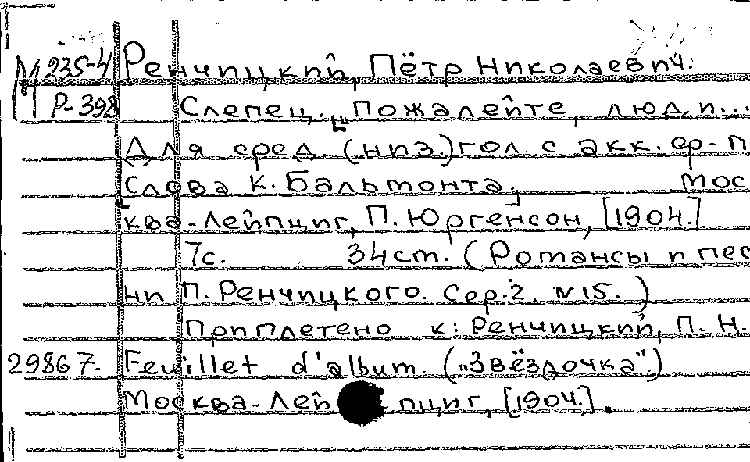 М 235-4 Ренчицкий, Пётр Николаевич.
Р-398 Слепец. [„Пожалейте, люди...
Для сред. (низ.) гол. с акк. ф-п.
Слова К. Бальмонта.] Мос
ква-Лейпциг, П. Юргенсон, [1904.]
7с. 34 cm. (Романсы и пес
ни П. Ренчицкого. Сер. 2. N 15.)
Приплетено к: Ренчицкий, П. Н.
29867. Feuillet d'album. („Звёздочка".)
Москва-Лейпциг, [1904.].